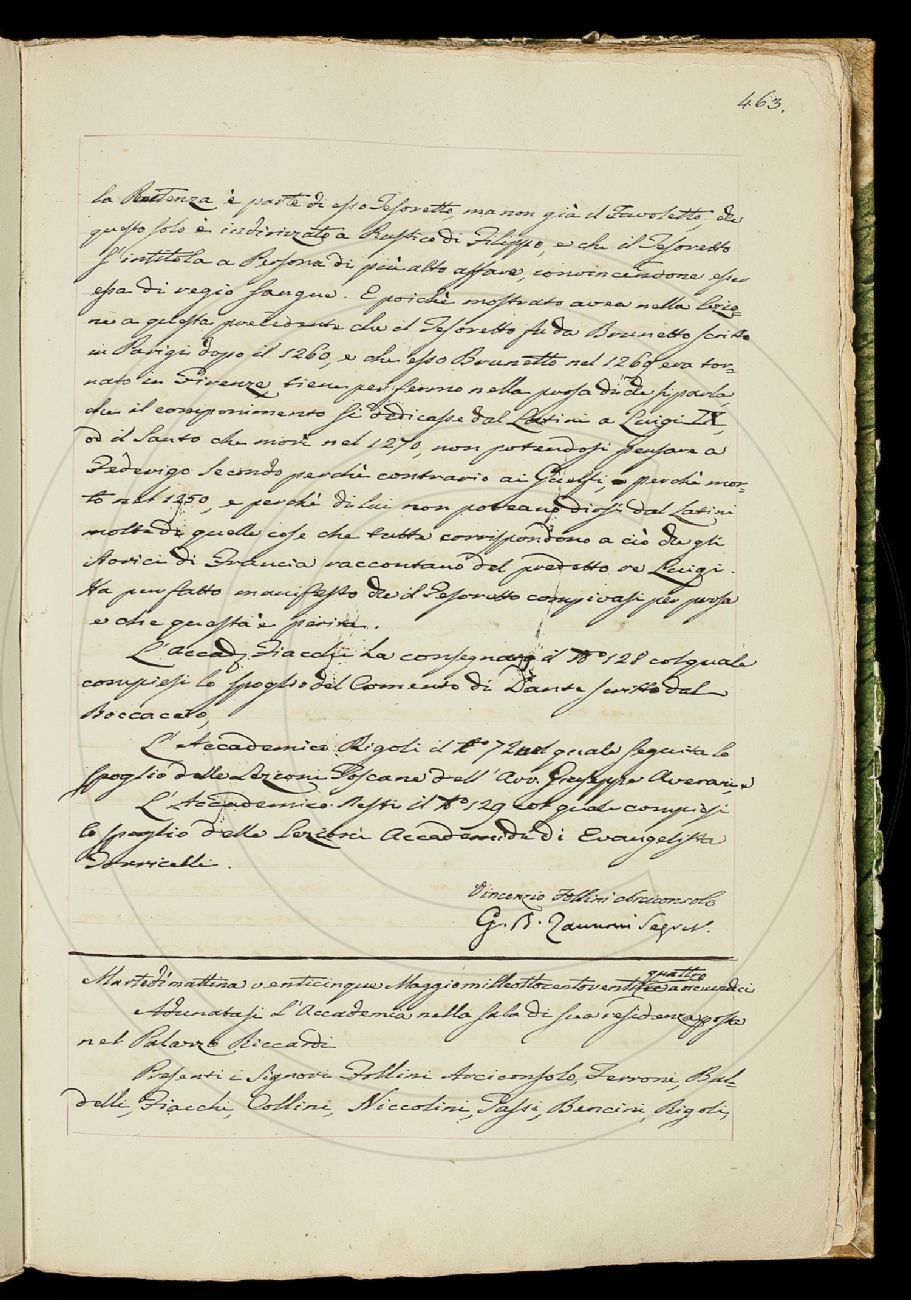 463.
la Penitenza è parte di esso Tesoretto, ma non già il Favoletto, che
questo solo è indirizzato a Rustico di Filippo, e che il Tesoretto
s'intitola a Persona di più alto affare, convincendone esser
essa di regio sangue. E poichè mostrato avea nella Lezio-
ne a questa precedente che il Tesoretto fu da Brunetto scritto
in Parigi dopo il 1260, e che esso Brunetto nel 1269 era tor-
nato in Firenze, tiene per fermo nella prosa di che si parla,
che il componimento si dedicasse dal Latini a Luigi IX,
od il Santo che morì nel 1270, non potendosi pensare a
Federigo Secondo perchè contrario ai Guelfi, e perchè mor-
to nel 1250, e perchè di lui non poteano dirsi dal Latini
molte di quelle cose che tutte corrispondono a ciò che gli
storici di Francia raccontano del predetto re Luigi.
Ha pur fatto manifesto che il Tesoretto compivasi per prosa
e che questa è perita.
L'accad. Fiacchi ha consegnato il N.o 128 col quale
compiesi lo spoglio del Comento di Dante scritto dal
Boccaccio,
L'Accademico Rigoli il N.o 72 nel quale seguita lo
spoglio delle Lezioni Toscane dell'Avv. Giuseppe Averani, e
L'Accademico Sesti il N.o 129 col quale compiesi
lo spoglio delle Lezioni Accademiche di Evangelista
Torricelli.
Vincenzio Follini Arciconsolo
G. B. Zannoni Segret.
quattro
Martedì mattina venticinque Maggio mille ottocento venti a ore undici
Adunatasi l'Accademia nella sala di sua residenza posta
nel Palazzo Riccardi
Presenti i Signori Follini Arciconsolo, Ferroni, Bal-
delli, Fiacchi, Collini, Niccolini, Tassi, Bencini, Rigoli,